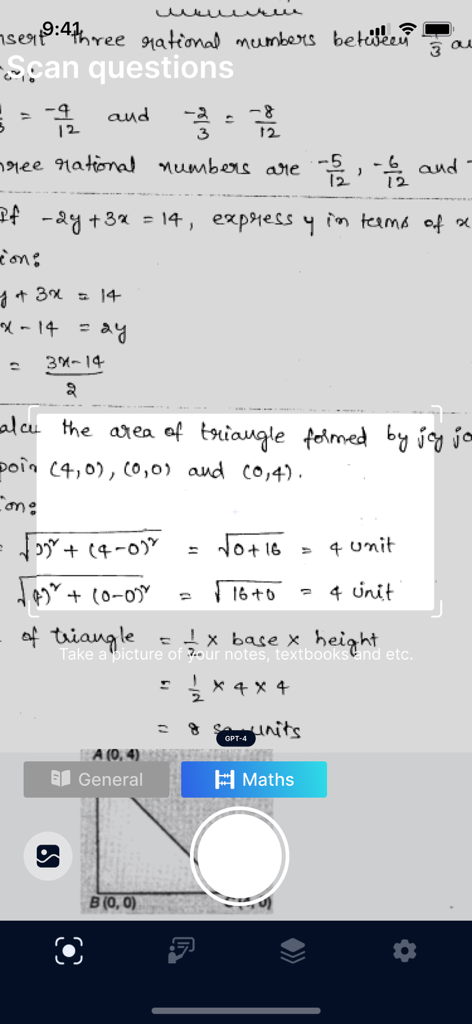 9:41
nsert three rational numbers between /3 au
Scan questions
ion:
/3 = -4/12 and -2/3 = -8/12
hree rational numbers are -5/12 , -6/12 and -
If -2y + 3x = 14, express y in terms of x
ion:
y + 3x = 14
x - 14 = 2y
= 3x-14/2
alcu the area of triangle formed by joy jo
poin (4,0), (0,0) and (0,4).
ion:
= √0)² + (4-0)² = √0+16 = 4 unit
√4)² + (0-0)² = √16+0 = 4 unit
of triangle = 1/2 × base × height
Take a picture of your notes, textbooks and etc.
= 1/2 × 4 × 4
= 8 sq units
GPT-4
A (0, 4)
General
Maths
B (0, 0)